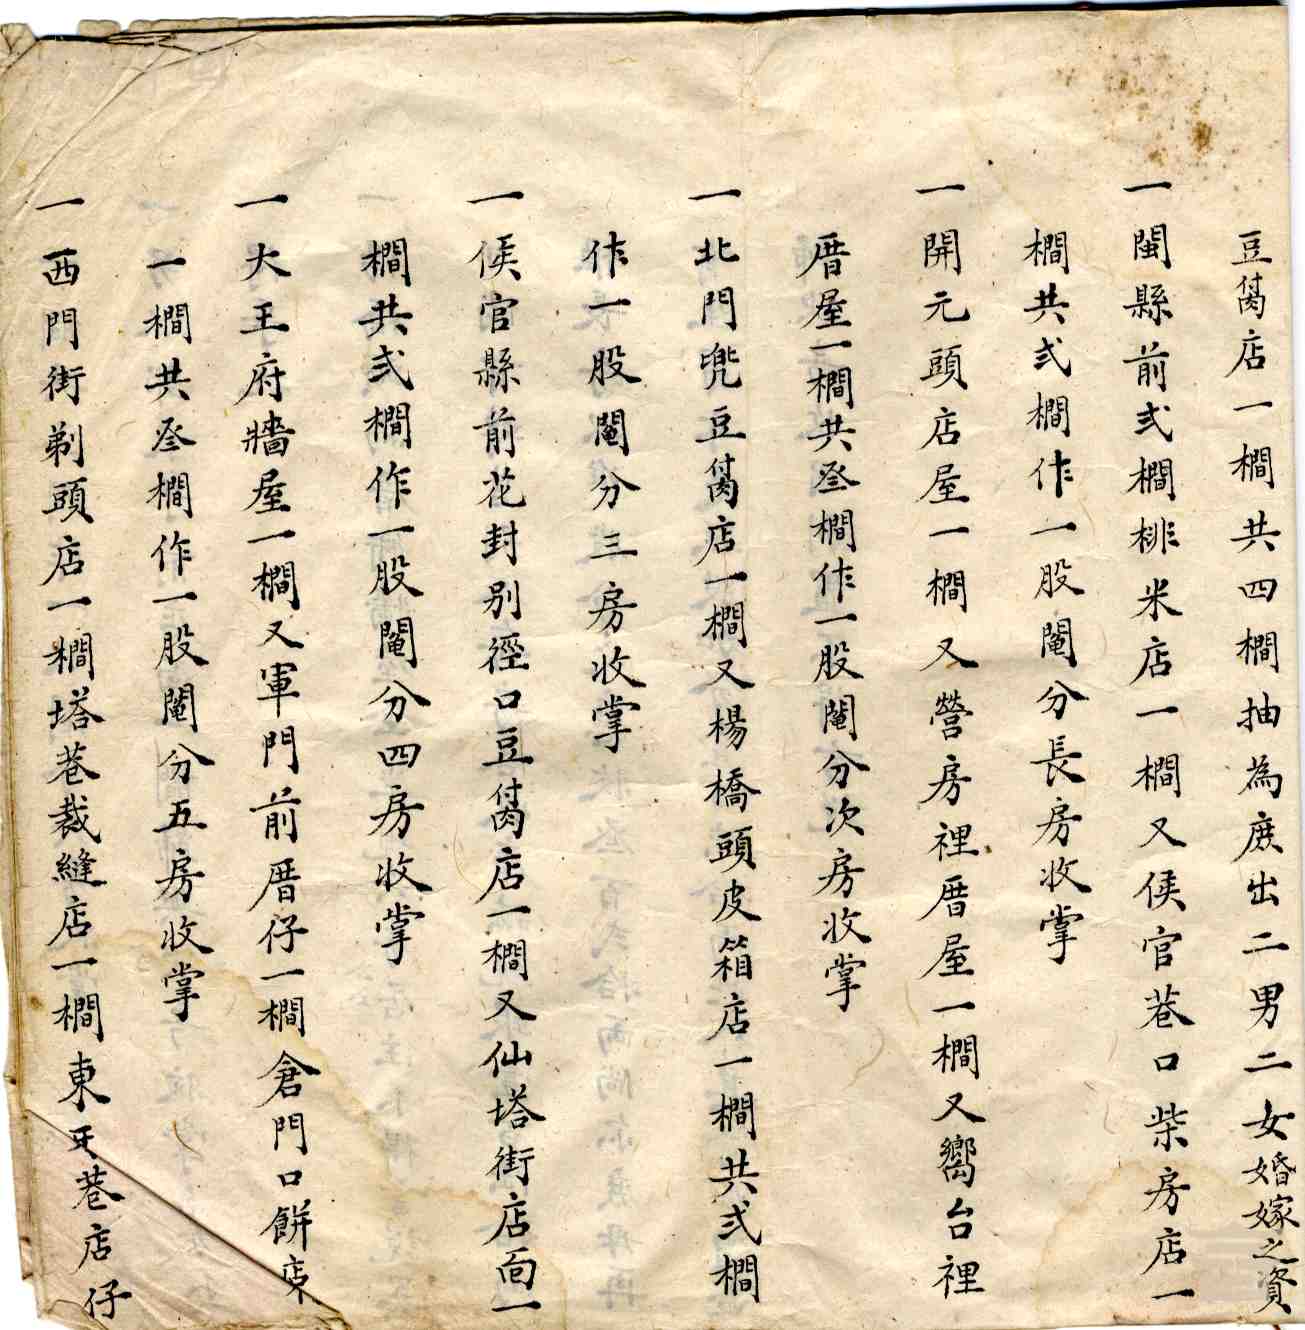 豆腐店一橺共四橺抽為庶出二男二女婚嫁之資
一閩縣前弍橺桃米店一橺又侯官巷口柴房店一
橺共弍橺作一股鬮分長房收掌
一開元頭店屋一橺又營房裡厝屋一橺又嚮台裡
厝屋一橺共叄橺作一股鬮分次房收掌
一北門兜豆腐店一橺又楊橋頭皮箱店一橺共弍橺
作一股鬮分三房收掌
一侯官縣前花封别徑口豆腐店一橺又仙塔街店面一
橺共弍橺作一股鬮分四房收掌
一大王府牆屋一橺又軍門前厝仔一橺倉門口餅店
一橺共叄橺作一股鬮分五房收掌
一西門街剃頭店一橺塔巷裁縫店一橺東牙巷店仔